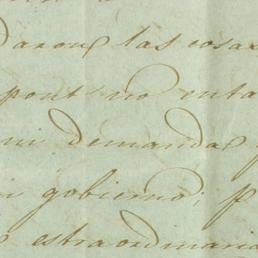 Daron las cosa
pont no enta
ni demanda
gobierno, p
estraordinaria